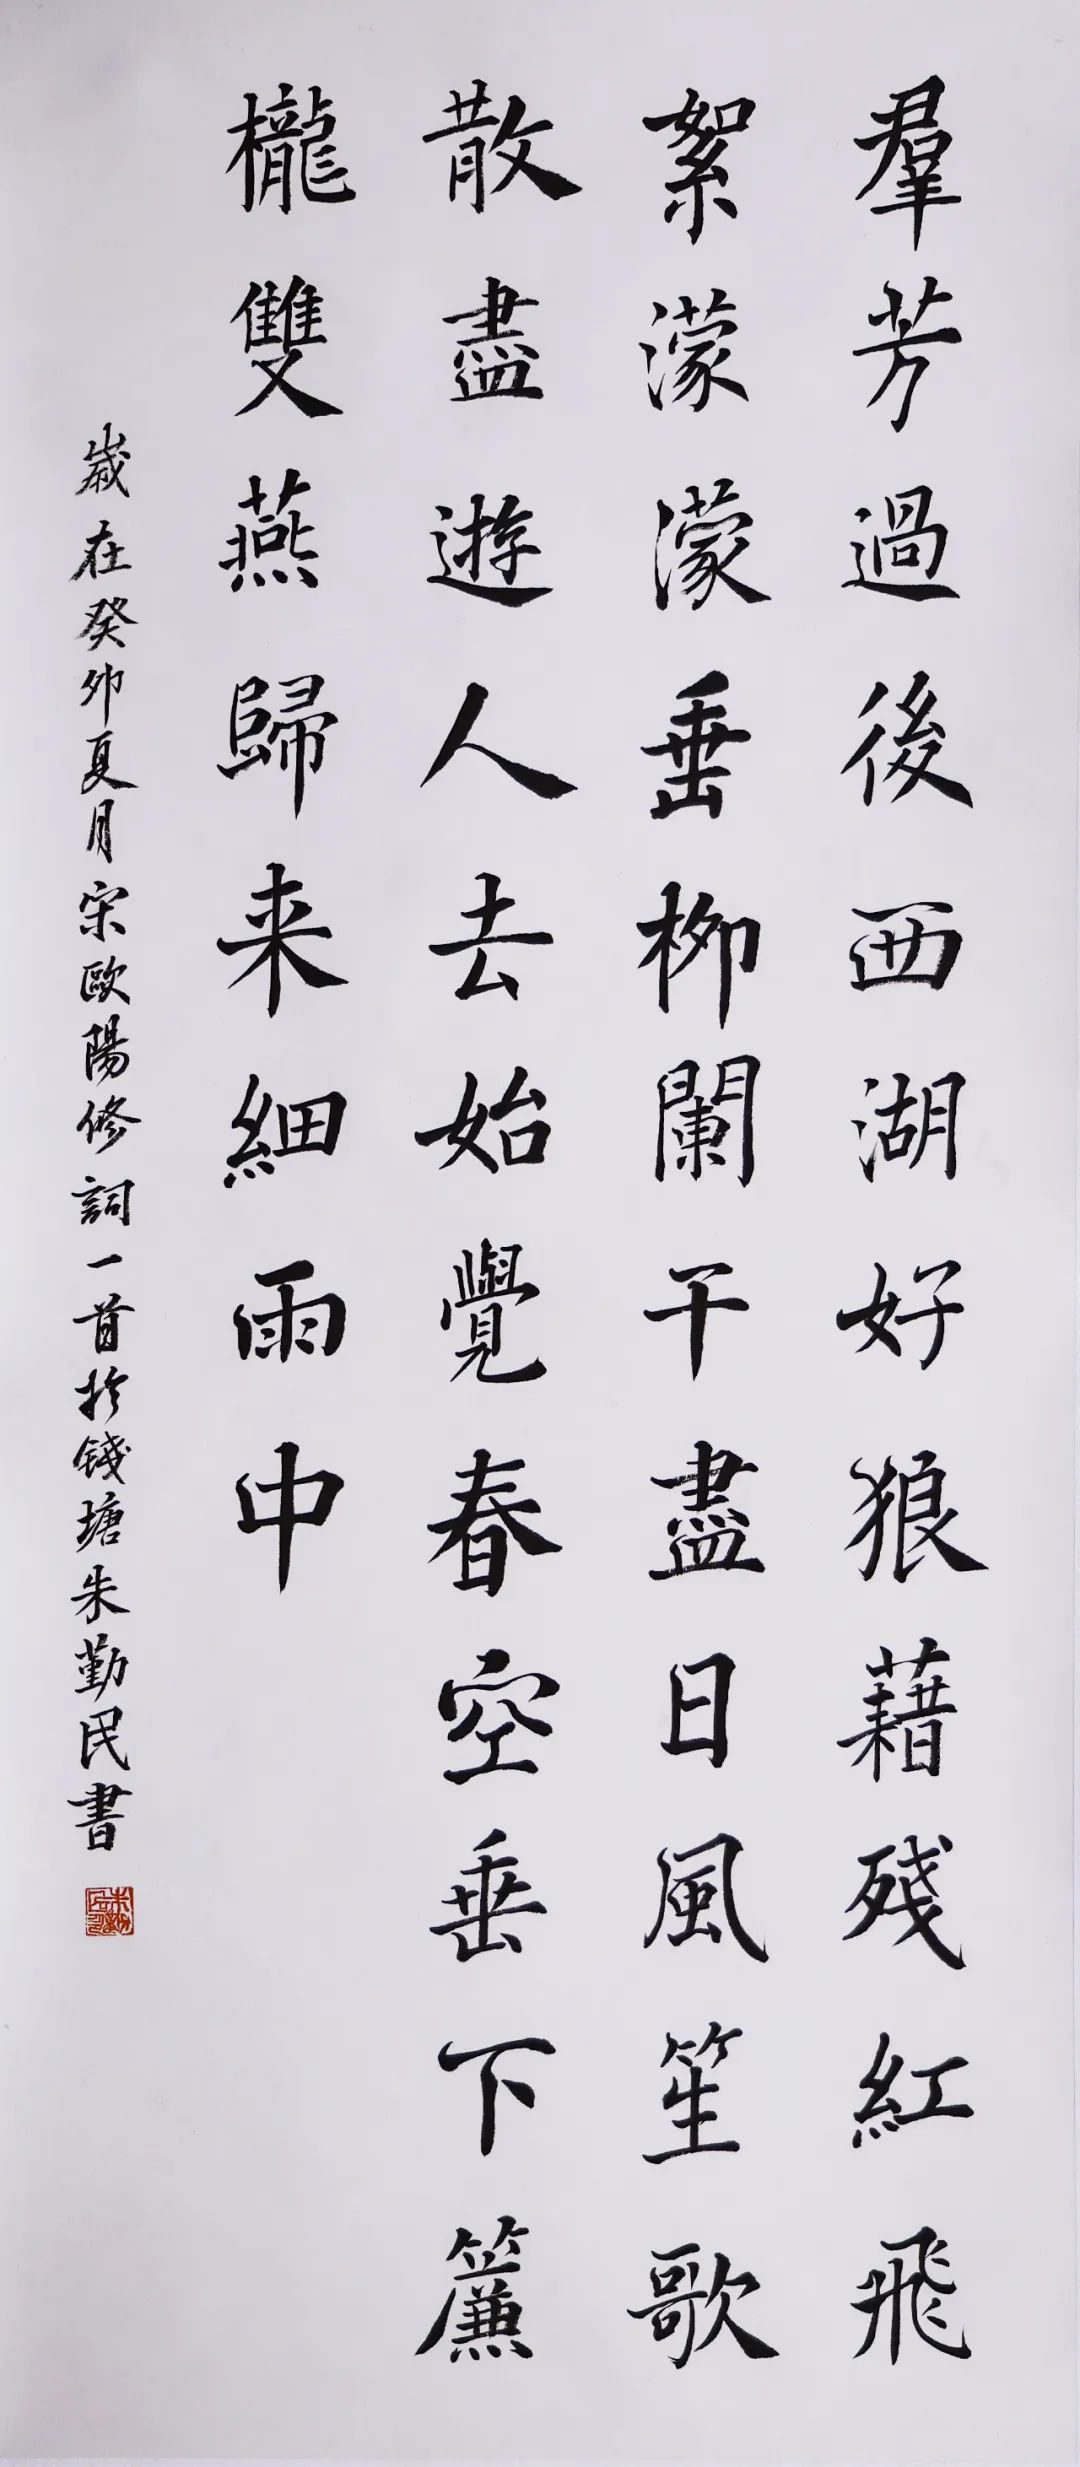 羣芳過後西湖好狼藉殘紅飛
絮濛濛垂柳闌干盡日風笙歌
散盡遊人去始覺春空垂下簾
櫳雙燕歸来細雨中
歲在癸卯夏月宋歐陽修詞一首於錢塘朱勤民書